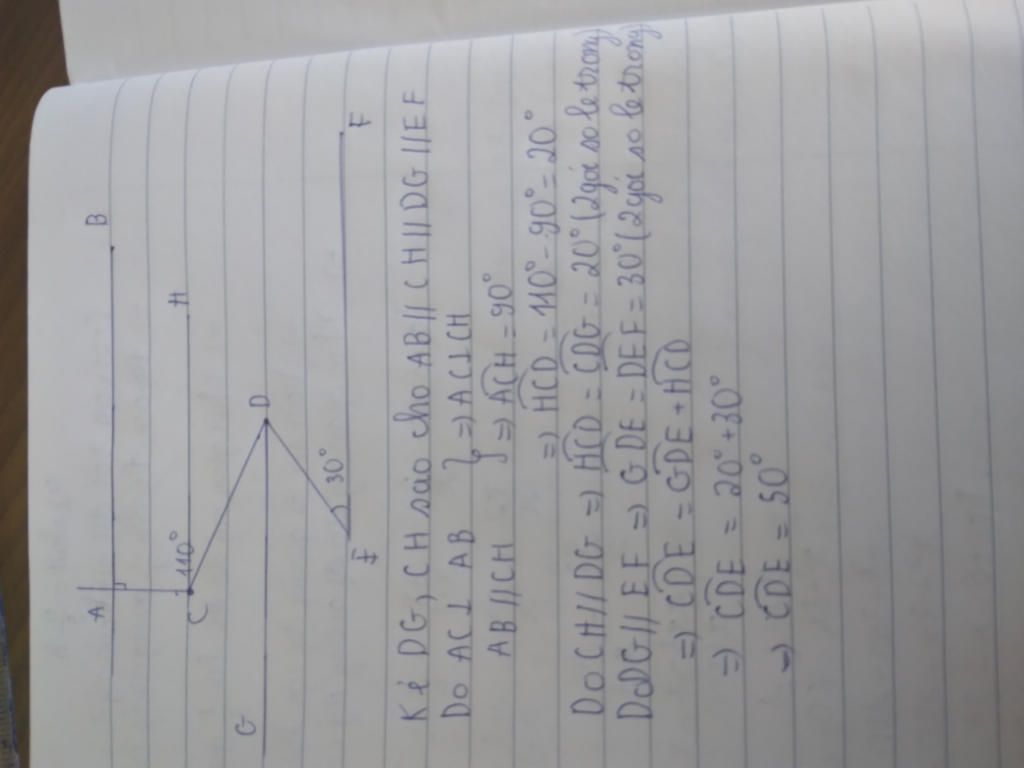 A B
C 110° H
G D
30°
E F
Kẻ DG, CH sao cho AB // CH // DG // EF
Do AC ⊥ AB } => AC ⊥ CH
AB // CH } => ACH = 90°
=> HCD = 110° - 90° = 20°
Do CH // DG => HCD = CDG = 20° (2 góc so le trong)
Do DG // EF => GDE = DEF = 30° (2 góc so le trong)
=> CDE = GDE + HCD
=> CDE = 20° + 30°
=> CDE = 50°